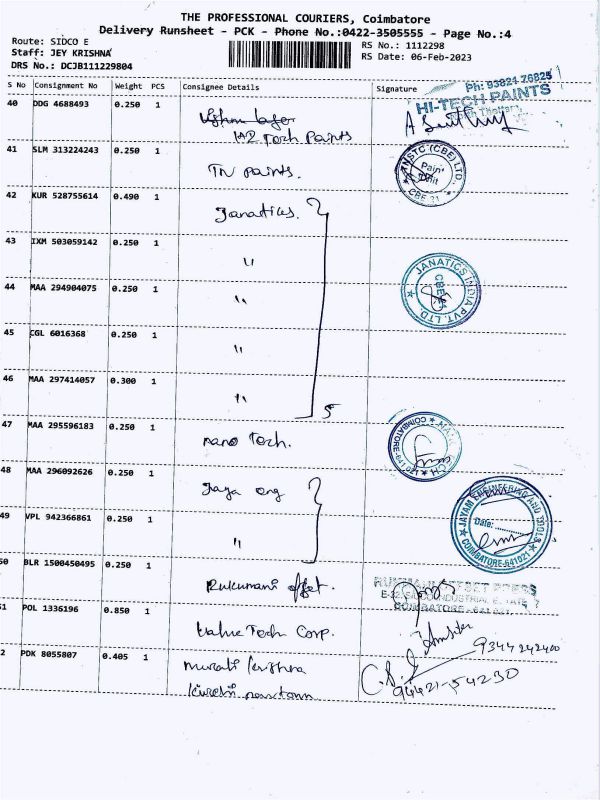 THE PROFESSIONAL COURIERS, Coimbatore
Delivery Runsheet - PCK - Phone No.:0422-3505555 - Page No.:4
Route: SIDCO E
Staff: JEY KRISHNA
DRS No.: DCJB111229804
RS No.: 1112298
RS Date: 06-Feb-2023
S No Consignment No Weight PCS Consignee Details Signature
Ph: 93624 76825
HI-TECH PAINTS
40 DDG 4688493 0.250 1
Tech Paints
41 SLM 313224243 0.250 1
TN paints.
ANSTC (CBE) LTD.
42 KUR 528755614 0.490 1 Janatics.
43 IXM 503059142 0.250 1 "
44 MAA 294904075 0.250 1 "
JANATICS INDIA PVT. LTD.
45 CGL 6016368 0.250 1 "
46 MAA 297414057 0.300 1 "
5
47 MAA 295596183 0.250 1
nano Tech.
COIMBATORE
48 MAA 296092626 0.250 1 Jaya eng
JAYAM ENGINEERING AND TOOLS
Date:
COIMBATORE-641021
49 VPL 942366861 0.250 1 "
50 BLR 1500450495 0.250 1
Rukumani offset.
RUKMANI OFFSET PRESS
COIMBATORE - 641 021
51 POL 1336196 0.850 1
Value Tech Corp.
9344242400
2 PDK 8055807 0.405 1 murali krishna
94421-54230